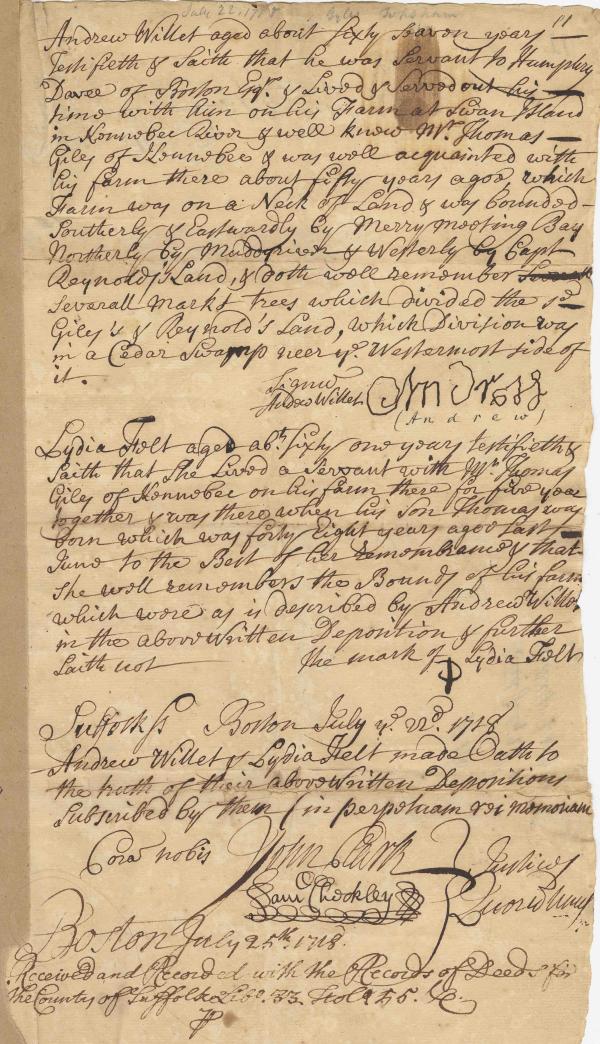 July 22, 1718 Gyles Topsham
11
Andrew Willet aged about Sixty Seaven years
Testifieth & Saith that he was Servant to Humphry
Davee of Boston Esqr. & Lived & Served out his
time with him on his Farm at Swan Island
in Kennebec River & well knew Mr. Thomas
Giles of Kennebec & was well acquainted with
his farm there about fifty years agoe, which
Farm was on a Neck of Land & was bounded
Southerly & Eastwardly by Merry meeting Bay
Northerly by Muddy river & Westerly by Capt
Reynold's Land, & doth well remember
Severall Markt Trees which divided the sd
Giles's & Reynold's Land, which Division was
in a Cedar Swamp neer ye. Westermost side of
it.
Signum
Andrew Willet
(Andrew)
Lydia Felt aged abt. Sixty one years testifieth &
Saith that She Lived a Servant with Mr. Thomas
Giles of Kennebec on his farm there for five year
together & was there when his Son Thomas was
born which was forty Eight years agoe last
June to the Best of her remembrance & that
She well remembers the Bounds of his farm
which were as is described by Andrew Willet
in the above Written Deposition & further
Saith not The mark of Lydia Felt
Suffolk ss Boston July ye. 22d. 1718
Andrew Willet & Lydia Felt made Oath to
the truth of their above Written Depositions
Subscribed by them (in perpetuam rei memoriam
Cora nobis John Clark Justices
Saml Checkley Quorum unus
Boston July 25th. 1718.
Received and Recorded with the Records of Deeds for
the County of Suffolk Libo. 33. Fol. 255. &c.